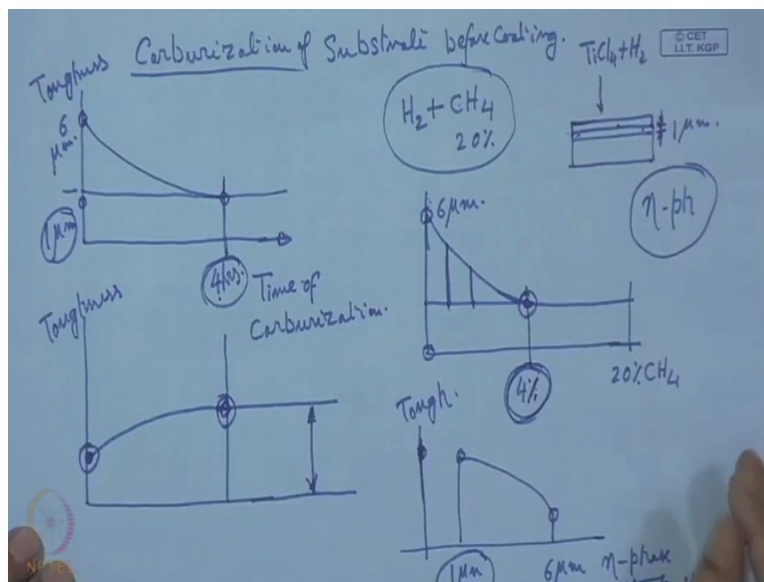 Carburization of Substrate before Coating.
© CET
I.I.T. KGP
Toughness
6
μm.
1 μm
4 hrs.
Time of
Carburization.
H₂ + CH₄
20%
TiCl₄ + H₂
1 μm.
η-ph
6 μm.
4%
20% CH₄
Toughness
Tough.
1 μm
6 μm
η-phase
NPTEL